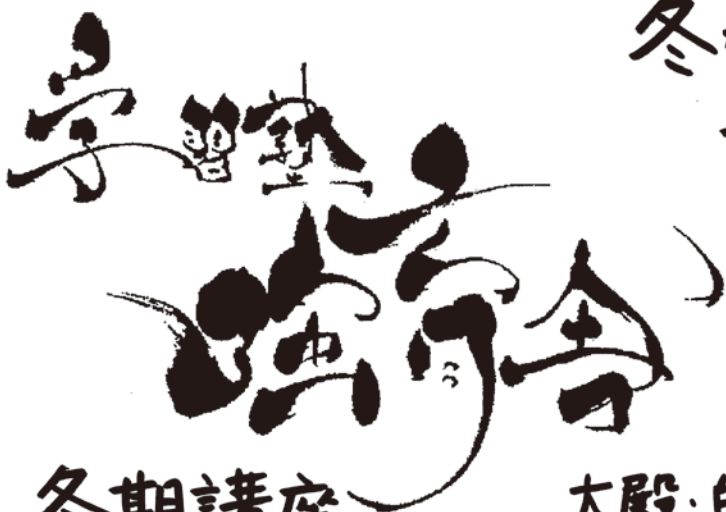 冬
学習塾
育舎
冬期講座
大殿・